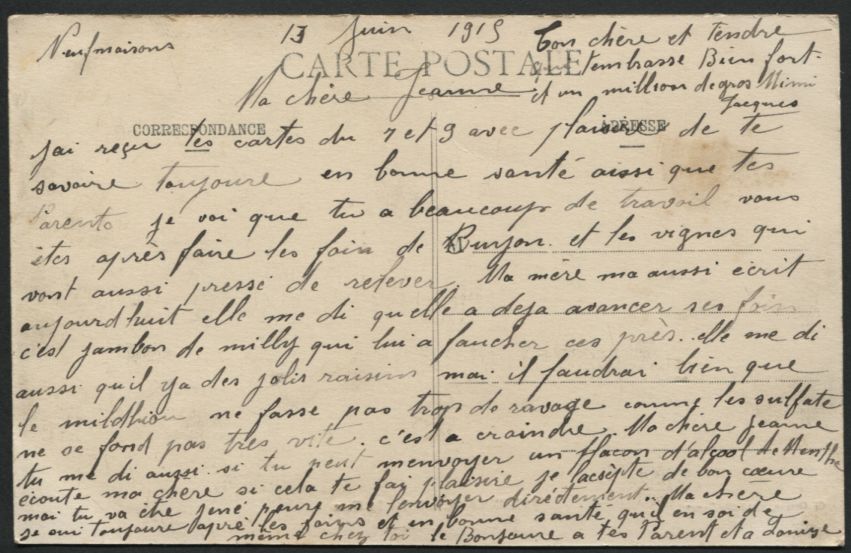 Neufmaisons 13 Juin 1915
CARTE POSTALE
Ma chère Jeanne
CORRESPONDANCE
ADRESSE
J'ai reçu tes cartes du 7 et 9 avec plaisir de te
savoire toujoure en bonne santé aissi que tes
Parents je voi que tu a beaucoup de travail vous
êtes après faire les foin de Burjon et les vignes qui
vont aussi pressé de relever. Ma mère ma aussi écrit
aujourd'huit elle me di quelle a deja avancer ses foin
c'est jambon de milly qui lui a faucher ces près. elle me di
aussi quil ya des jolis raisins mai il faudrai bien que
le mildhiou ne fasse pas trop de ravage comme les sulfate
ne se fond pas tres vite. c'est a craindre. Ma chère Jeanne
tu me di aussi si tu peut m'envoyer un flacon d'alcool de Menthe
écoute ma chère si cela te fai plaisire je l'acsèpte de bon coeure
mai tu va être jéné pour me l'envoyer dirèctement. Ma chère
je sui toujoure après les foins et en bonne santé qu'il en soi de
même chez toi le Bonjoure a tes Parent et a Louise
Ton chère et tendre
qui t'embrasse Bien fort
et un million de gros Mimi
Jacques